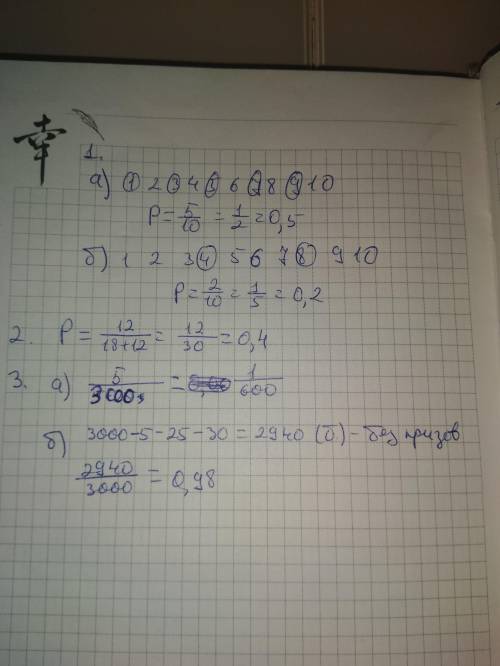 幸
1.
а) 1 2 3 4 5 6 7 8 9 10
P = 5/10 = 1/2 = 0,5
б) 1 2 3 4 5 6 7 8 9 10
P = 2/10 = 1/5 = 0,2
2. P = 12/18+12 = 12/30 = 0,4
3. а) 5/3000 = 1/600
б) 3000-5-25-30 = 2940 (б) - без призов
2940/3000 = 0,98